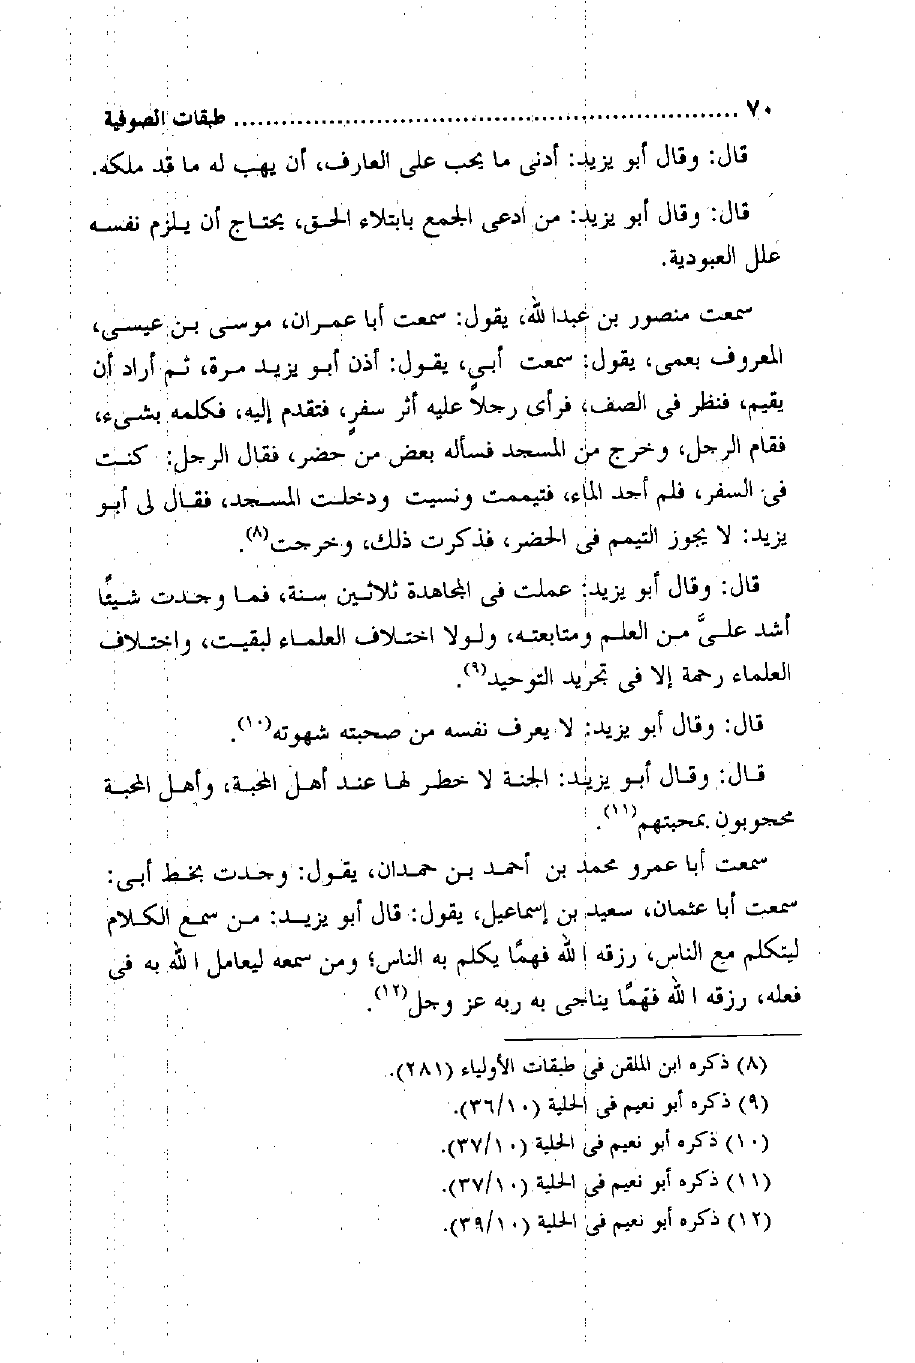 ٧٠ ........................................................ طبقات الصوفية
قال: وقال أبو يزيد: أدنى ما يحب على العارف، أن يهب له ما قد ملكه.
قال: وقال أبو يزيد: من ادعى الجمع بابتلاء الحق، يحتاج أن يلزم نفسه
علل العبودية.
سمعت منصور بن عبدالله، يقول: سمعت أبا عمران، موسى بن عيسى،
المعروف بعمى، يقول: سمعت أبى، يقول: أذن أبو يزيد مرة، ثم أراد أن
يقيم، فنظر فى الصف، فرأى رجلاً عليه أثر سفرٍ، فتقدم إليه، فكلمه بشىء،
فقام الرجل، وخرج من المسجد فسأله بعض من حضر، فقال الرجل: كنت
فى السفر، فلم أجد الماء، فتيممت ونسيت ودخلت المسجد، فقال لى أبو
يزيد: لا يجوز التيمم فى الحضر، فذكرت ذلك، وخرجت(٨).
قال: وقال أبو يزيد: عملت فى المجاهدة ثلاثين سنة، فما وجدت شيئًا
أشد علىَّ من العلم ومتابعته، ولولا اختلاف العلماء لبقيت، واختلاف
العلماء رحمة إلا فى تجريد التوحيد(٩).
قال: وقال أبو يزيد: لا يعرف نفسه من صحبته شهوته(١٠).
قال: وقال أبو يزيد: الجنة لا خطر لها عند أهل المحبة، وأهل المحبة
محجوبون بمحبتهم(١١).
سمعت أبا عمرو محمد بن أحمد بن حمدان، يقول: وجدت بخط أبى:
سمعت أبا عثمان، سعيد بن إسماعيل، يقول: قال أبو يزيد: من سمع الكلام
ليتكلم مع الناس، رزقه الله فهمًا يكلم به الناس؛ ومن سمعه ليعامل الله به فى
فعله، رزقه الله فهمًا يناجى به ربه عز وجل(١٢).
(٨) ذكره ابن الملقن فى طبقات الأولياء (٢٨١).
(٩) ذكره أبو نعيم فى الحلية (٣٦/١٠).
(١٠) ذكره أبو نعيم فى الحلية (٣٧/١٠).
(١١) ذكره أبو نعيم فى الحلية (٣٧/١٠).
(١٢) ذكره أبو نعيم فى الحلية (٣٩/١٠).